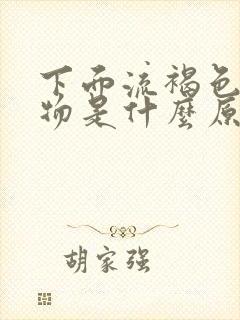 下面流褐色
物是什麼原
胡家强